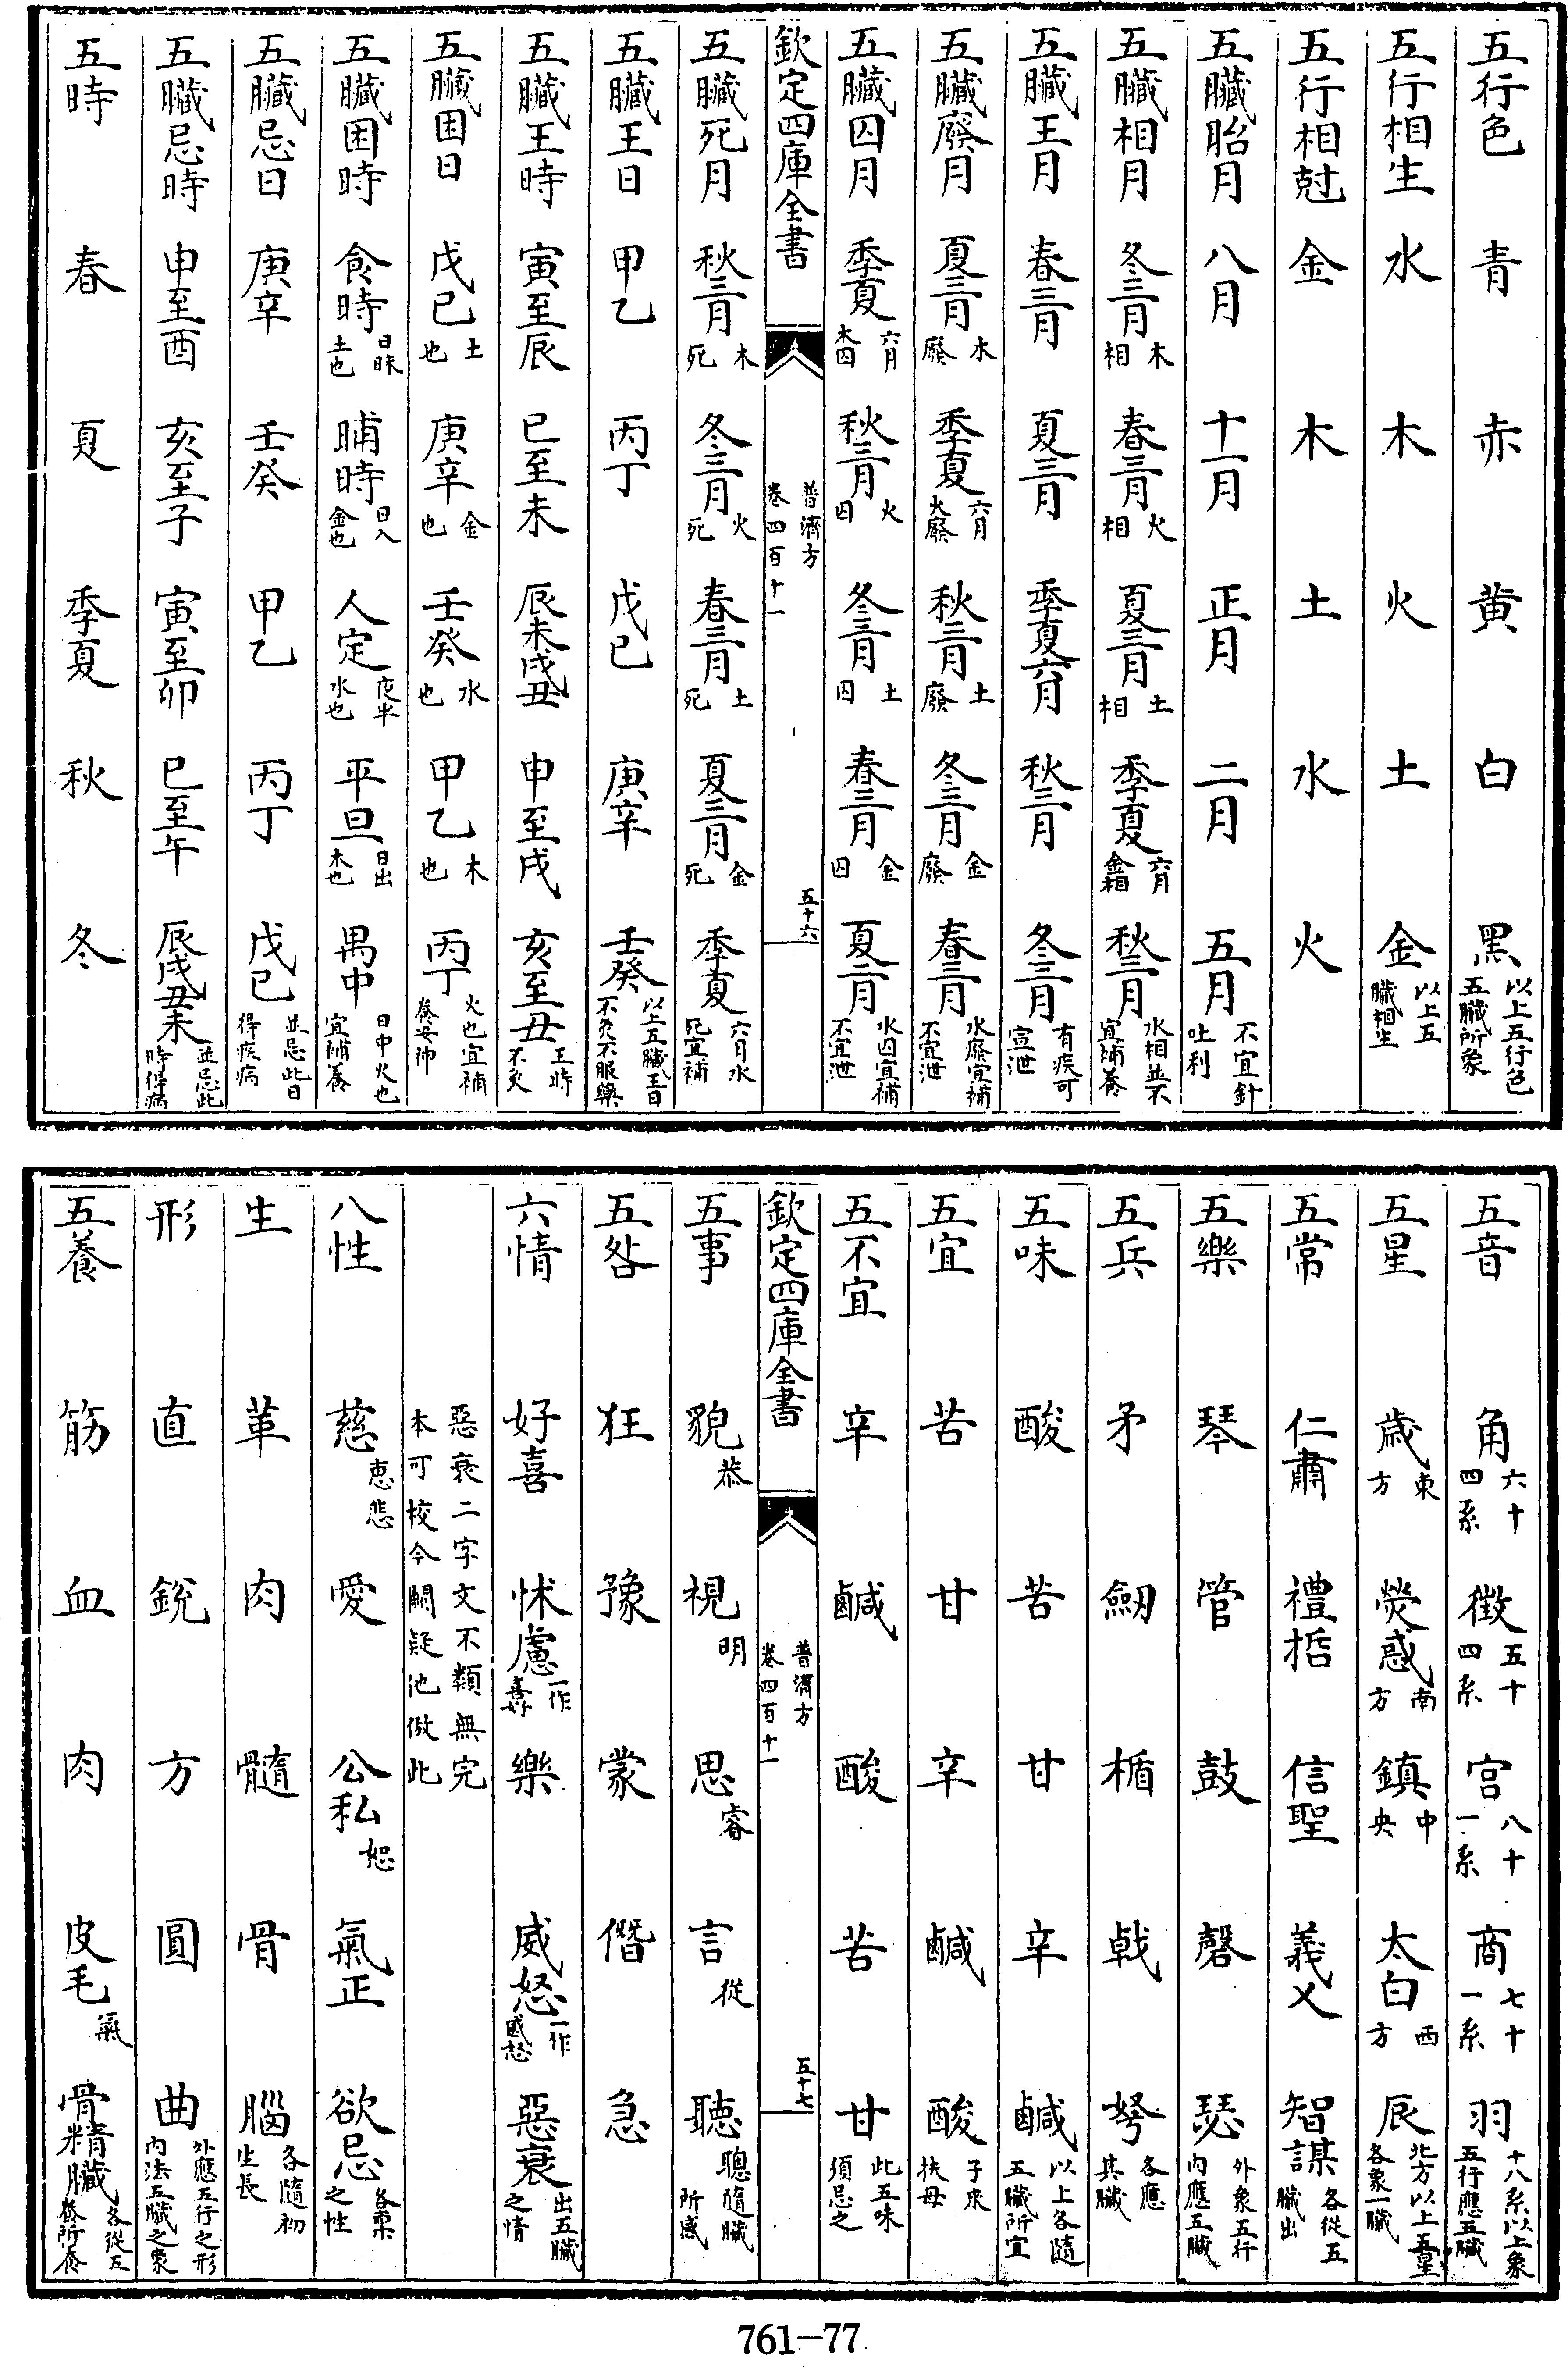 五行色 青 赤 黄 白 黑 以上五行色五臟所象
五行相生 水 木 火 土 金 以上五臟相生
五行相尅 金 木 土 水 火
五臟胎月 八月 十一月 正月 二月 五月 不宜針吐利
五臟相月 冬三月 木相 春三月 火相 夏三月 土相 季夏 六月金相 秋三月 水相並不宜補養
五臟王月 春三月 夏三月 季夏六月 秋三月 冬三月 有疾可宣泄
五臟廢月 夏三月 木廢 季夏 六月火廢 秋三月 土廢 冬三月 金廢 春三月 水廢宜補不宜泄
五臟囚月 季夏 六月木囚 秋三月 火囚 冬三月 土囚 春三月 金囚 夏三月 水囚宜補不宜泄
欽定四庫全書 普濟方卷四百十一 五十六
五臟死月 秋三月 木死 冬三月 火死 春三月 土死 夏三月 金死 季夏 六月水死宜補
五臟王日 甲乙 丙丁 戊己 庚辛 壬癸 以上五臟王日不灸不服藥
五臟王時 寅至辰 巳至未 辰未戌丑 申至戌 亥至丑 王時不灸
五臟困日 戊己 土也 庚辛 金也 壬癸 水也 甲乙 木也 丙丁 火也宜補養安神
五臟困時 食時 日昳土也 晡時 日入金也 人定 夜半水也 平旦 日出木也 禺中 日中火也宜補養
五臟忌日 庚辛 壬癸 甲乙 丙丁 戊己 並忌此日得疾病
五臟忌時 申至酉 亥至子 寅至卯 巳至午 辰戌丑未 並忌此時得病
五時 春 夏 季夏 秋 冬
五音 角 六十四系 徴 五十四系 宫 八十一系 商 七十一系 羽 十八系以上象五行應五臟
五星 歳 東方 熒惑 南方 鎮 中央 太白 西方 辰 北方以上五星各象一臟
五常 仁肅 禮哲 信聖 義乂 智謀 各從五臟出
五樂 琴 管 鼓 磬 瑟 外象五行内應五臟
五兵 矛 劔 楯 戟 弩 各應其臟
五味 酸 苦 甘 辛 鹹 以上各隨五臟所宜
五宜 苦 甘 辛 鹹 酸 子來扶母
五不宜 辛 鹹 酸 苦 甘 此五味須忌之
欽定四庫全書 普濟方卷四百十一 五十七
五事 貌 恭 視 明 思 睿 言 從 聽 聰隨臟所感
五咎 狂 豫 蒙 僭 急
六情 好喜 怵慮 一作喜好 樂 威怒 一作感怒 惡衰 出五臟之情
惡衰二字文不類無完本可校今闕疑他倣此
八性 慈 恵悲 愛 公私 恕 氣正 欲忌 各稟之性
生 革 肉 髓 骨 腦 各隨初生長
形 直 銳 方 圓 曲 外應五行之形内法五臟之象
五養 筋 血 肉 皮毛 氣 骨精臟 各從五養所養
761-77